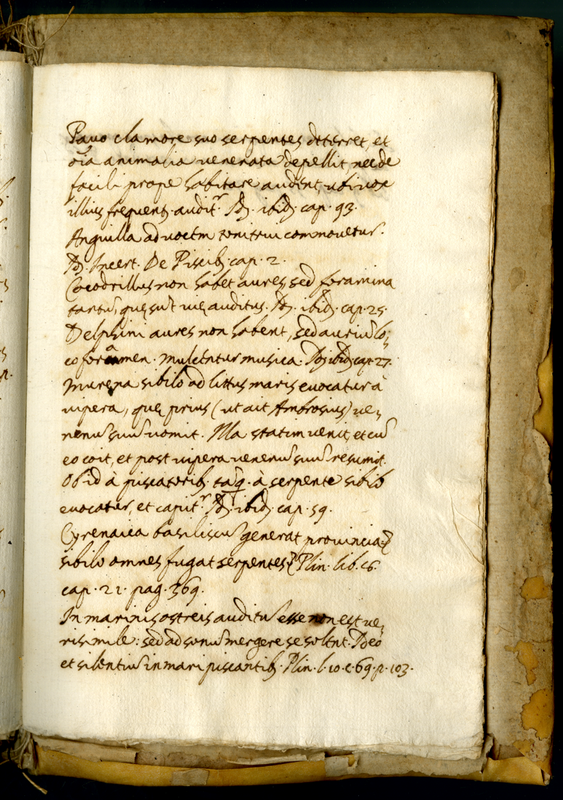 Pavo clamore suo serpentes deterret, et
oĩa animalia venenata depellit, nec de
facili prope habitare audent, ubi vox
illius frequent. auditr. ibid. cap. 93.
Anguilla ad vocem tonitrui commovetur.
Incert. De Piscib. cap. 2.
Cocodrillus non habet aures, sed foramina
tantũ, quę sũt vię auditus. ibid. cap. 25.
Delphini aures non habent, sed auriũ lo,
co foramen. mulcentur musica. ibid. cap. 27.
Murena sibilo ad littus maris evocatur à
vipera, quę prius (ut ait Ambrosius) ve,
nenũ suũ vomit. Illa statim venit, et cũ
eo coit, et post vipera venenũ suũ resumit.
Ob id à piscatorib. tãq. à serpente sibilo
evocatur, et capitr. ibid. cap. 59.
Cyrenaica basiliscũ generat provincia, q
sibilo omnes fugat serpentes. Plin. lib.
cap. 21. pag. 369.
In marinis ostreis auditũ esse non est ve,
risimile: sed ad sonũ mergere se solent. Ideo
et silentiũ in mari piscantib. Plin. l. 10. c. 69. p. 103.